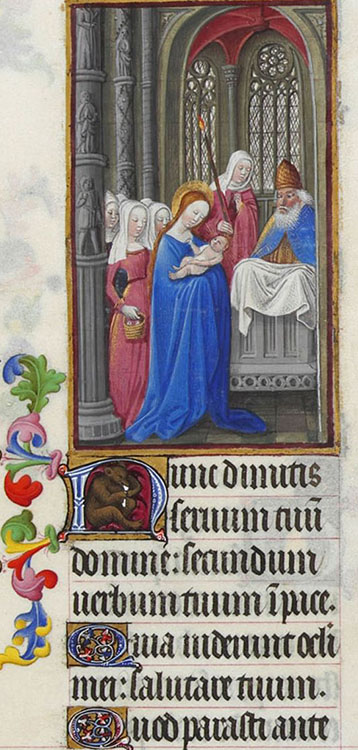 Nunc dimittis
seruum tuū
domine: secundum
uerbum tuum ī pace.
Quia uiderunt ocli
mei: salutare tuum.
Quod parasti ante